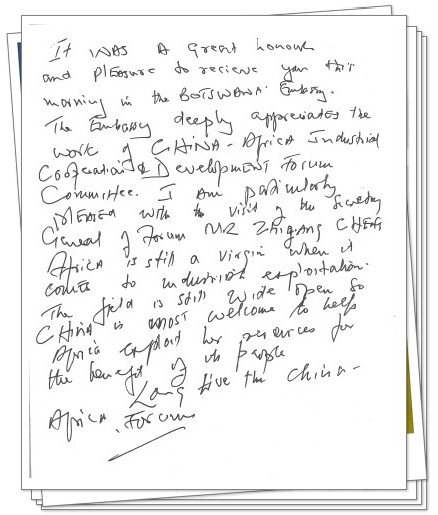 It WAS A Great honour
and PLEasure to recieve you this
morning in the BOTSWANA Embassy.
The Embassy deeply appreciates the
work of CHINA-Africa Industrial
Cooperation & Development Forum
Committee. I Am particularly
PLEASED with the visit of the Secretary
General of Forum MR Zhigang CHEN
Africa is still a virgin when it
comes to industrial exploitation.
The field is still wide open so
CHINA is most welcome to help
Africa exploit her resources for
the benefit of its people
Long live the China-
Africa Forum